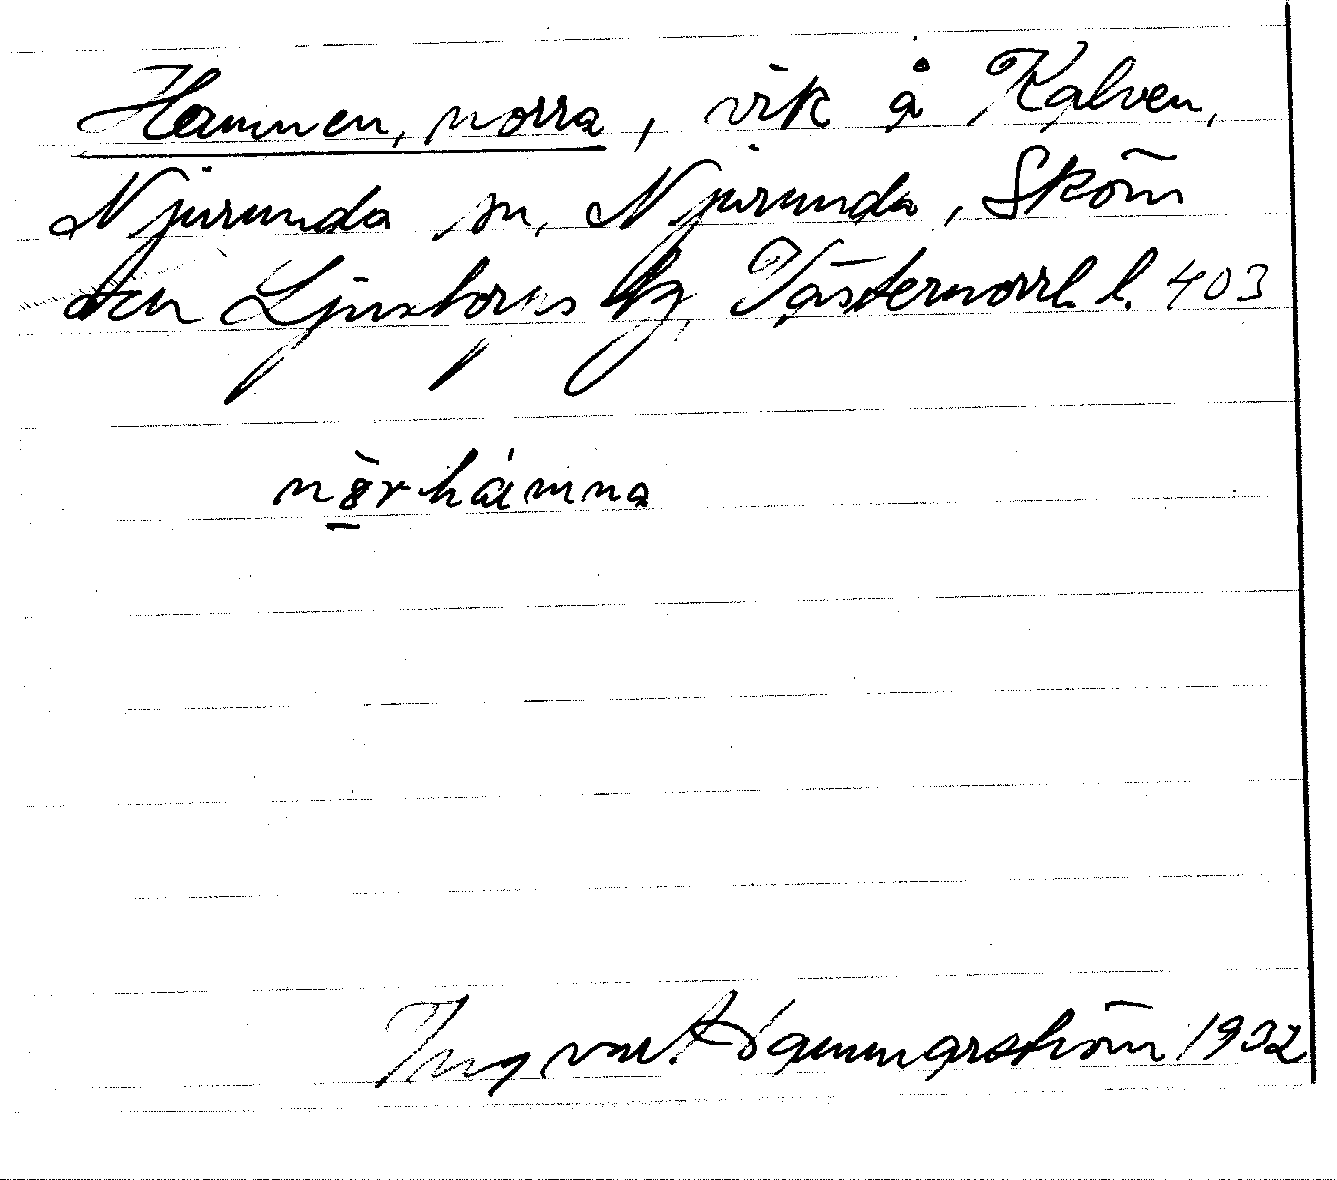 Hamnen, norra, vik å Kalven,
Njurunda sn, Njurunda, Sköns
och Ljustorps tg, Västernorrl. l. 403
nörhámna
Ingvar Hammarström 1932